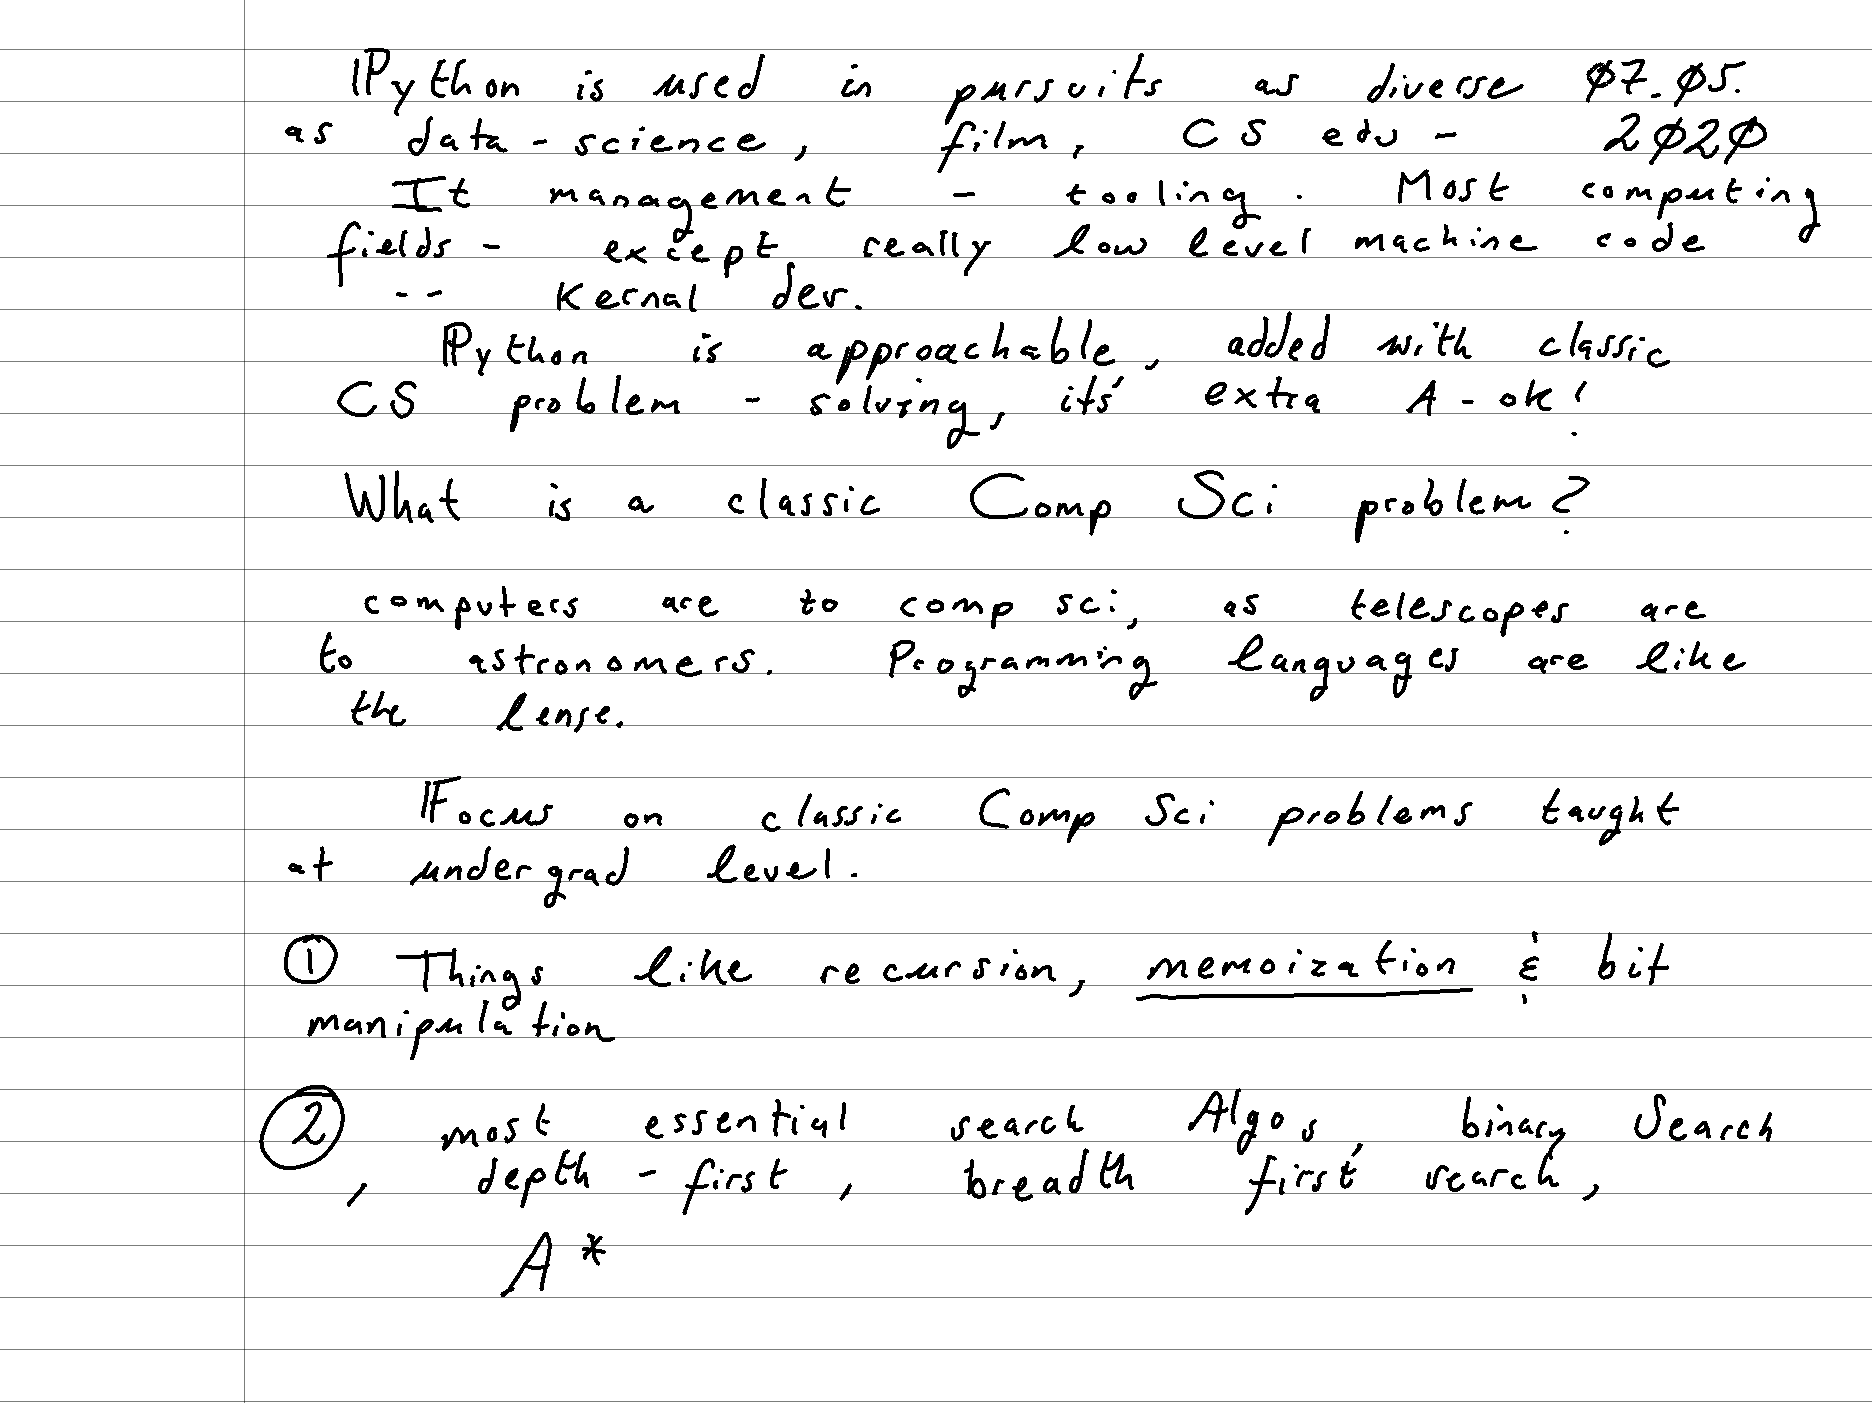 Python is used in pursuits as diverse 07.05.
as data-science, film, CS edu - 2020
It management - tooling. Most computing
fields - except really low level machine code
-- Kernal dev.
Python is approachable, added with classic
CS problem - solving, it's extra A-ok!
What is a classic Comp Sci problem?
computers are to comp sci, as telescopes are
to astronomers. Programming languages are like
the lense.
Focus on classic Comp Sci problems taught
at undergrad level.
① Things like recursion, memoization & bit
manipulation
② most essential search Algos, binary Search
, depth - first, breadth first search,
A*